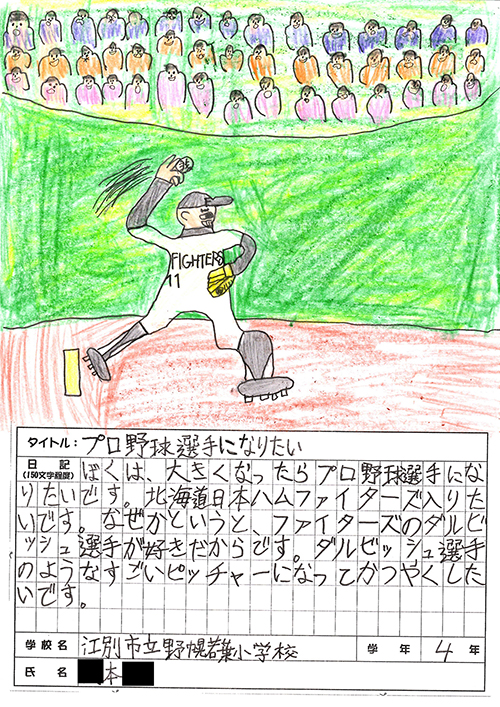 FIGHTERS
11
タイトル：プロ野球選手になりたい
日記
(150文字程度)
ぼくは、大きくなったらプロ野球選手にな
りたいです。北海道日本ハムファイターズ入りた
いです。なぜかというと、ファイターズのダルビ
ッシュ選手が好きだからです。ダルビッシュ選手
のようなすごいピッチャーになってかつやくした
いです。
学校名 江別市立野幌若葉小学校 学年 4年
氏名 本